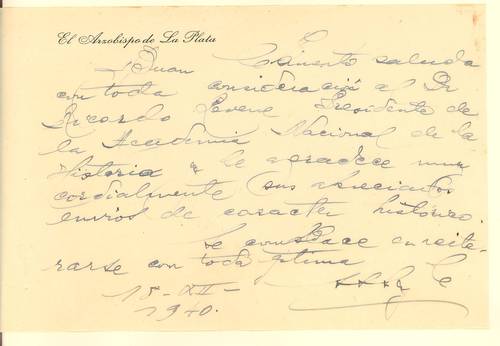 El Arzobispo de La Plata
Juan Chimento saluda
con toda consideración al Dr
Ricardo Levene Presidente de
la Academia Nacional de la
Historia y le agradece muy
cordialmente sus apreciados
envíos de caracter histórico.
Se complace en reite
rarse con toda estima
15-XII-
1940.